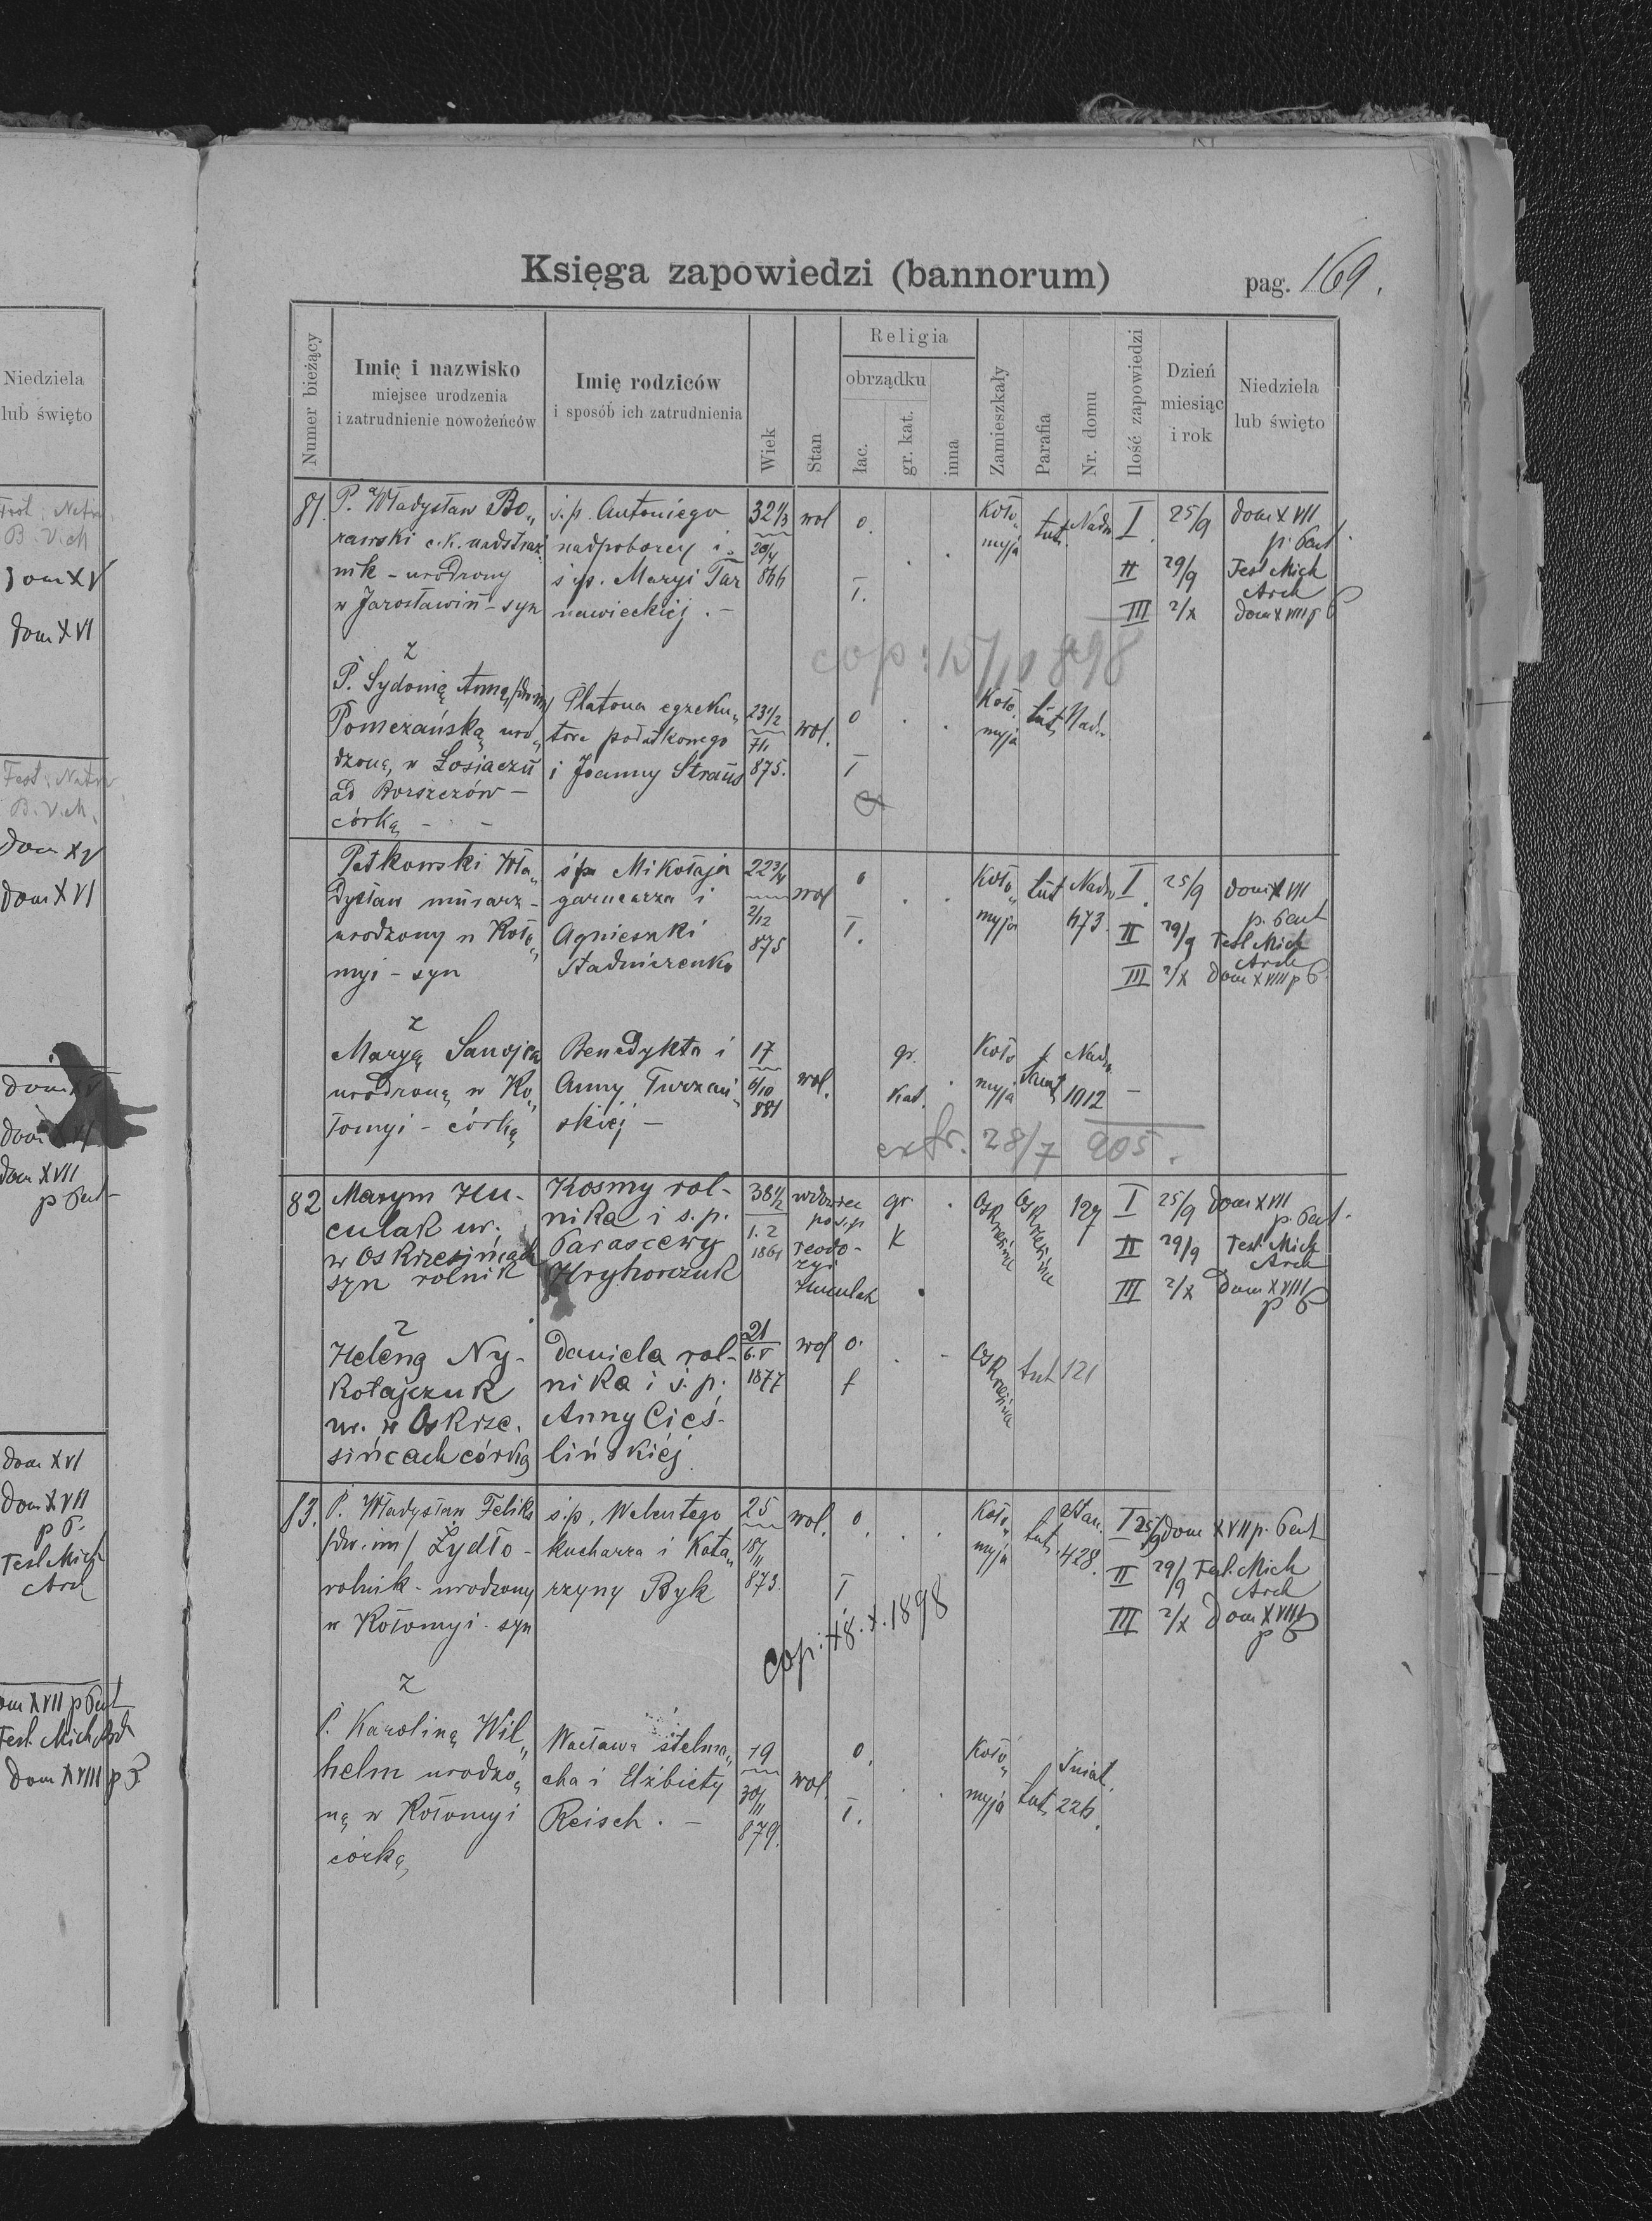 Niedziela
lub święto
Fest. Nativ.
B. V. M
Dom XV
Dom XVI
Fest. Nativ
B. V. M.
Dom XV
Dom XVI
Dom XV
Dom XVI
Dom XVII
p Pent
Dom XVI
Dom XVII
p P.
Fest Mich
Arch
Dom XVII p Pent
Fest. Mich Arch
Dom XVIII p P
Księga zapowiedzi (bannorum)
pag. 169.
Numer bieżący
Imię i nazwisko
miejsce urodzenia
i zatrudnienie nowożeńców
Imię rodziców
i sposób ich zatrudnienia
Wiek
Stan
Religia
obrządku
łac.
gr. kat.
inna
Zamieszkały
Parafia
Nr. domu
Ilość zapowiedzi
Dzień
miesiąc
i rok
Niedziela
lub święto
81. P. Władysław Bo„ ś.p. Antoniego 32 1/3 wol o. Koło„ tut. Nadw I. 25/9 Dom XVII
rawski c.k. nadstraż nadpoborcy i myja p. Pent.
nik - urodzony ś.p. Maryi Tar 866 II 29/9 Fest Mich
Arch
w Jarosławiu - syn nawieckiej . - ł. III 2/X Dom XVIII p P
cop: 15/10 898
z
P. Sydonią Anną /dw im/ Platona egzeku„ 23 1/2 wol. o Koło. tut. Nad.
Pomezańską uro„ tora podatkowego 7/1 myja
dzoną, w Łosiaczu i Joanny Straus 875. ł
ad Borszczów -
córką - -
Petkowski Wła„ ś.p. Mikołaja 22 3/4 wol o Koło„ tut Nadw I. 25/9 Dom XVII
dysław murarz - garncarza i 2/12 myja 473. p. Pent
urodzony w Koło„ Agnieszki 875 ł. II 29/9 Fest Mich
Arch
myi - syn Stadniczenko III 2/X Dom XVIII p P.
z
Maryą Sanojca Benedykta i 17 wol. gr. Koło Nadw.
urodzoną w Ko„ Anny Turzań„ 6/10 kat. myja 1012 -
łomyi - córką skiej - 881
extr. 28/7 905.
82 Maxym Hu- Kosmy rol- 38 1/2 wdowiec gr. Oskrzesińce Oskrzesińce 127 I 25/9 Dom XVII
culak ur. nika i ś.p. 1. 2 po ś.p K p. Pent.
w Oskrzesińcach Parascewy 1861 Teodo- II 29/9 Fest. Mich
Arch
syn rolnik Hryhorczuk zyi
Huculak III 2/X Dom XVIII
p P
z
Heleną Ny- Daniela rol- 21 wol o. Oskrzesińce tut 121
kołajczuk nika i ś.p. 6. V ł
ur. w Oskrze. Anny Cieś- 1877
sińcach córką lińskiej
83. P. Władysław Feliks ś.p. Walentego 25 wol. o. Koło„ tut. Stan. I 25/9 Dom XVII p. Pent
/dw. im/ Żydło - kucharza i Kata„ 18/11 myja 428. II 29/9 Fest. Mich
Arch
rolnik - urodzony rzyny Byk 873. ł III 2/X Dom XVIII
p P
w Kołomyi - syn
cop: 18. X. 1898
z
P. Karoliną Wil„ Wacława stelma„ 19 wol. o. Koło„ tut. Śniat.
helm urodzo„ cha i Elżbiety 30/11 myja 226.
ną w Kołomyi Reisch. - 879. ł.
córką